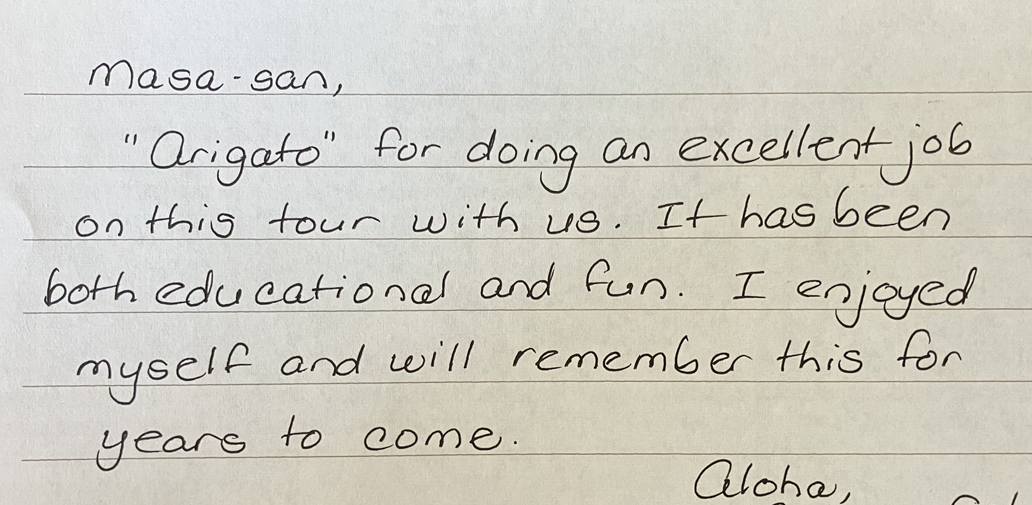 Masa-san,
"Arigato" for doing an excellent job
on this tour with us. It has been
both educational and fun. I enjoyed
myself and will remember this for
years to come.
Aloha,